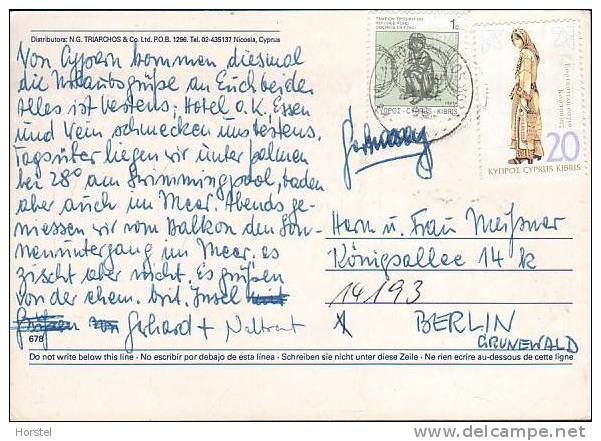 Distributors: N.G. TRIARCHOS & Co. Ltd. P.O.B. 1296. Tel. 02-435137 Nicosia, Cyprus
Von Cypern kommen diesmal
die Urlaubsgrüße an Euch beide.
Alles ist bestens: Hotel o.K. Essen
und Wein schmecken uns bestens.
Tagsüber liegen wir unter Palmen
bei 28° am Swimmingpool, baden
aber auch im Meer. Abends ge-
niessen wir vom Balkon den Son-
nenuntergang im Meer. es
zischt aber nicht. Es grüßen
von der ehem. brit. Insel
Gerhard +
678
1c
ΚΥΠΡΟΣ - CYPRUS - KIBRIS
20
ΚΥΠΡΟΣ CYPRUS KIBRIS
Germany
Herrn u. Frau Meißner
Königsallee 14 k
14193
BERLIN
GRUNEWALD
Do not write below this line · No escribir por debajo de esta línea · Schreiben sie nicht unter diese Zeile · Ne rien ecrire au-dessous de cette ligne
Horstel
www.delcampe.net